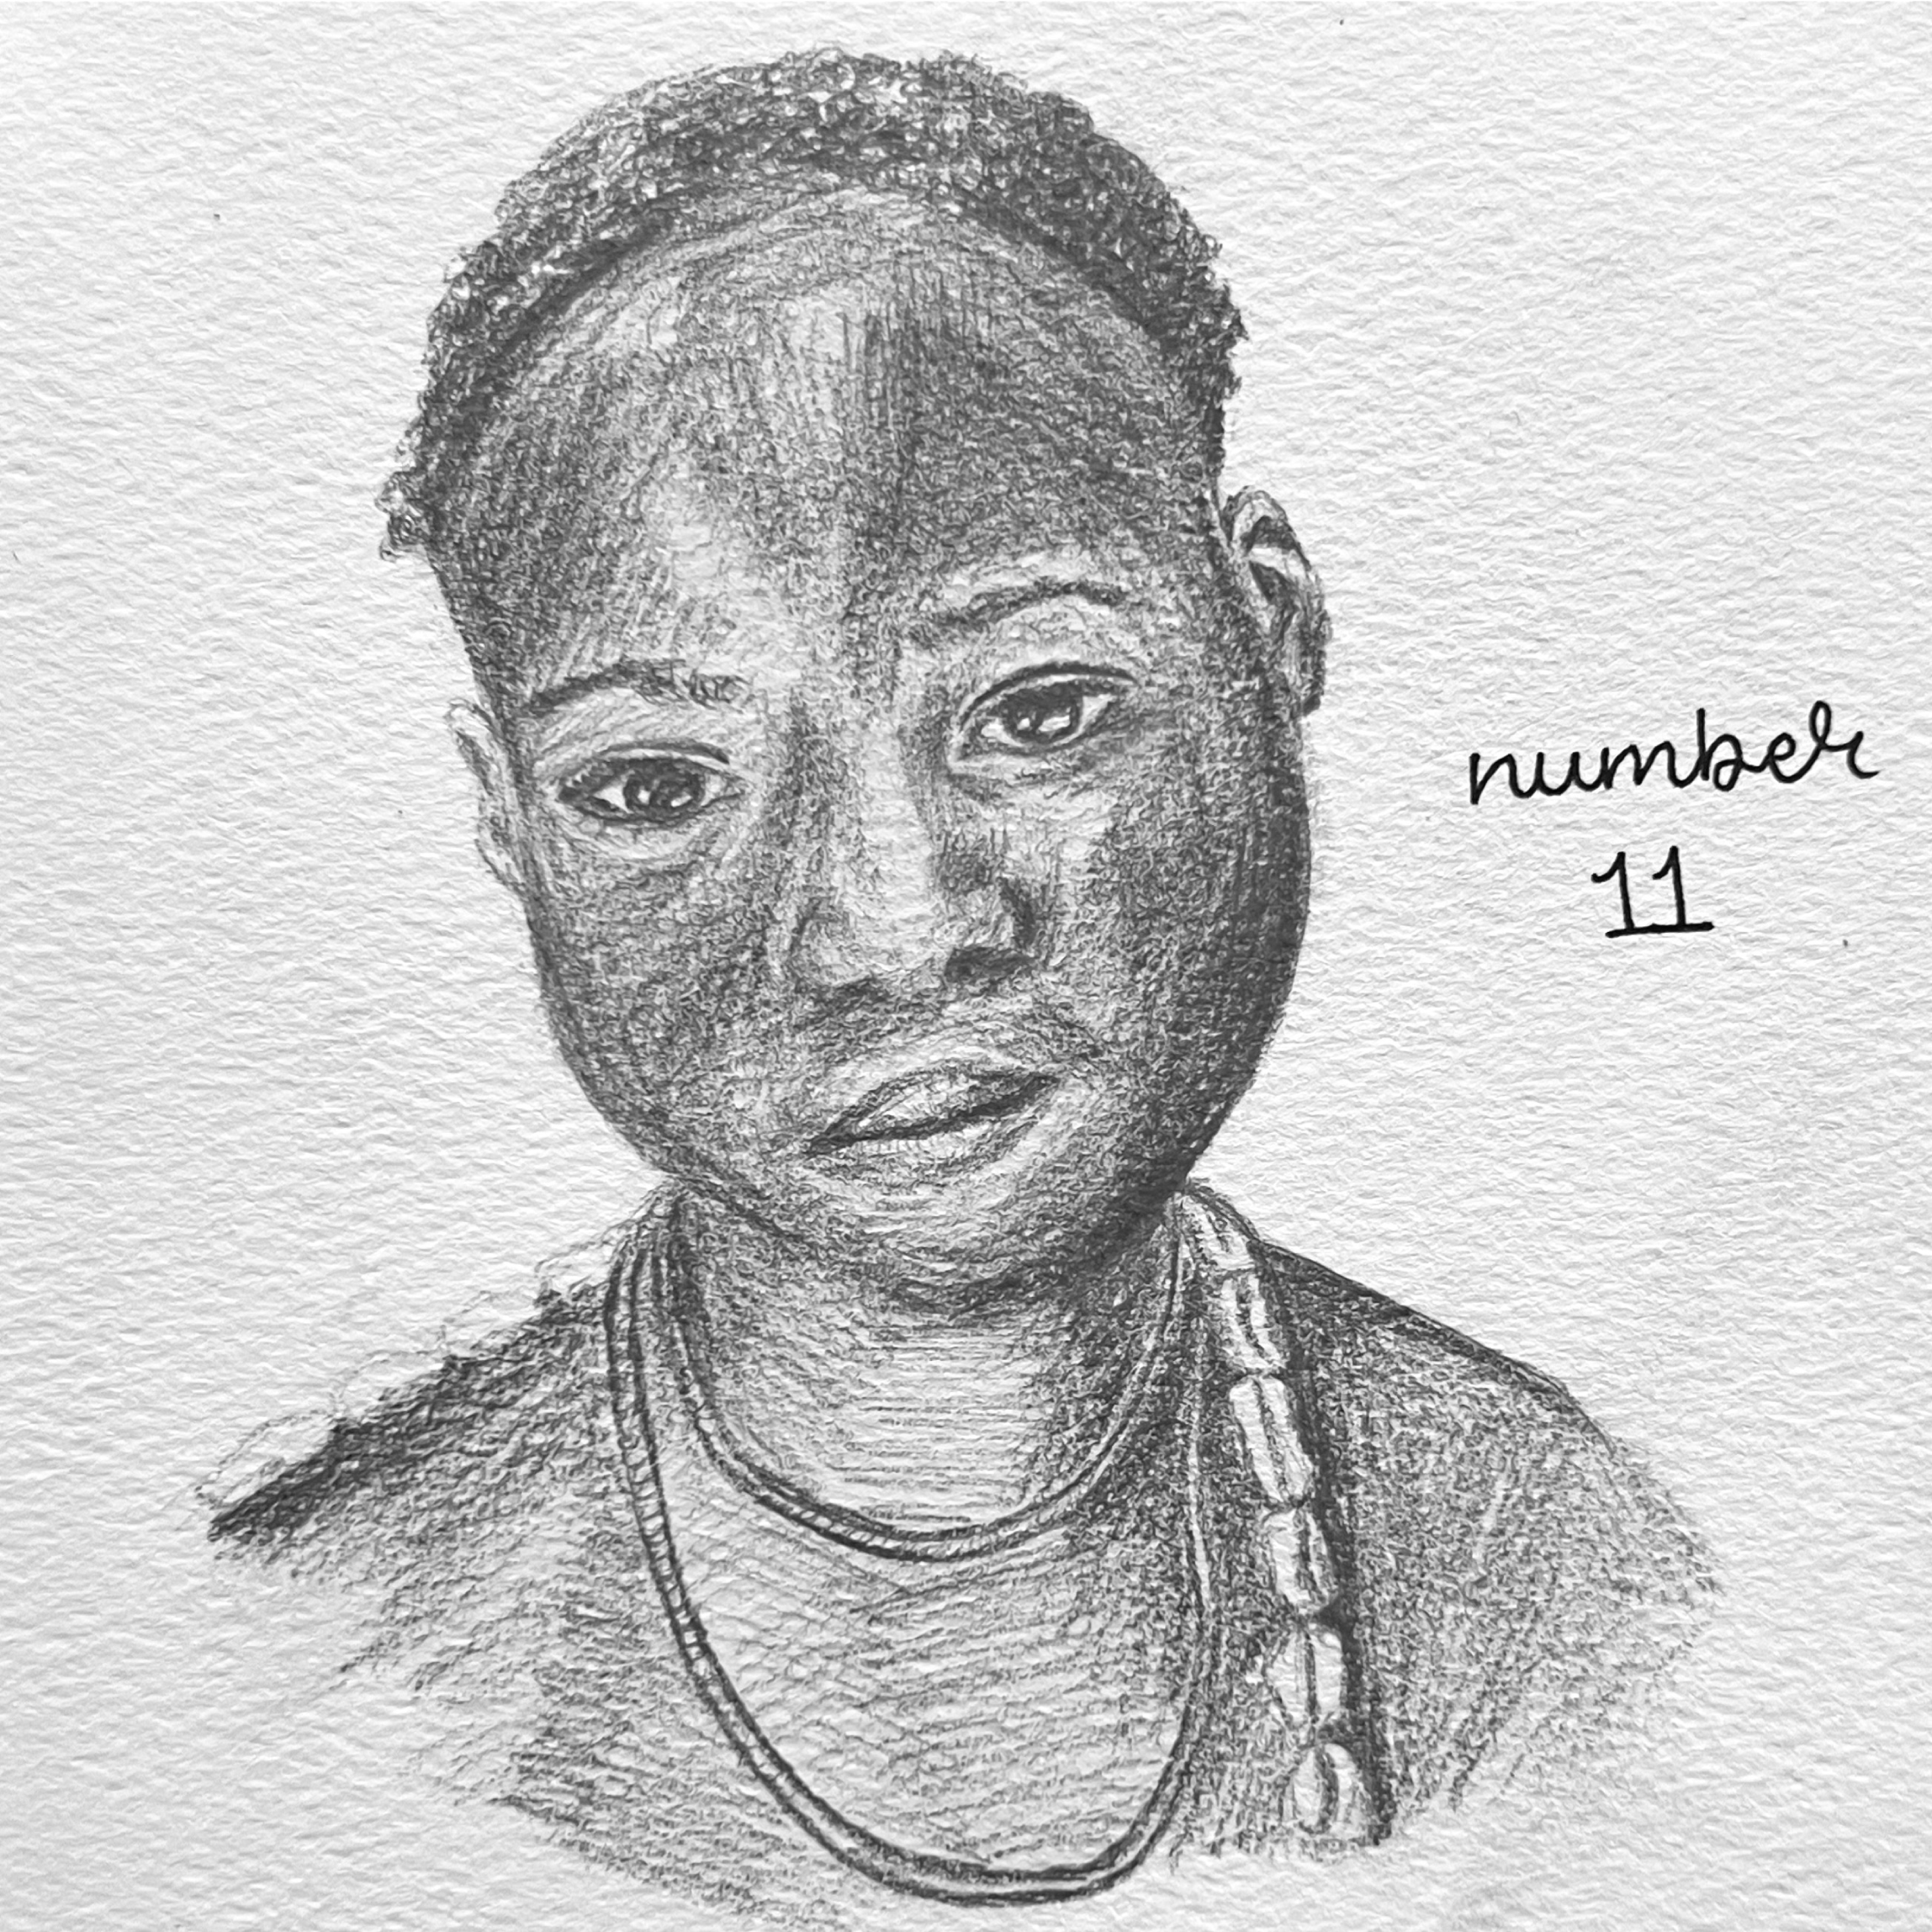 number
11